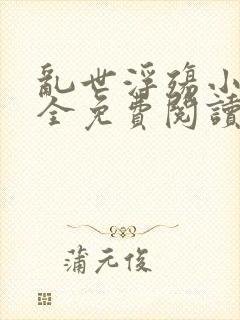 亂世浮殤小
全免費閱讀
蒲元俊